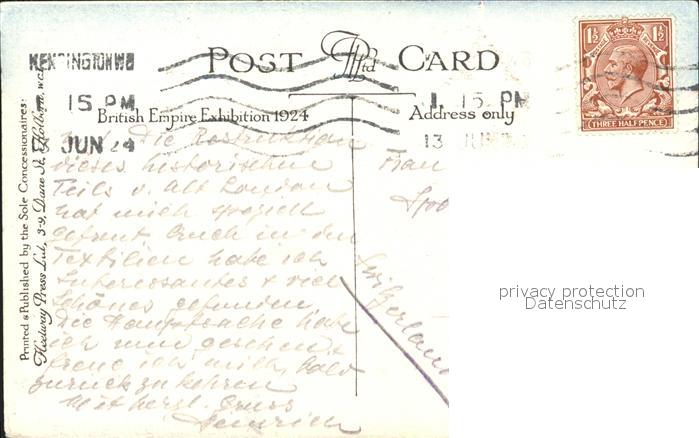 KENSINGTON W8
1 15 PM
JUN 24
POST CARD
British Empire Exhibition 1924
Address only
1 15 PM
13 JUN
1½ 1½
THREE HALF PENCE
Printed & Published by the Sole Concessionaires:
Fleetway Press Ltd., 3-9, Dane St., Holborn, W.C.
Die
dieses historischen
Teils v. alt London
hat mich speziell
gefreut Auch in den
Textilien habe ich
Interessantes & viel
Schönes gefunden
Die Hauptsache habe
ich nun gesehen &
freue ich mich, bald
zurückzukehren
Mit herzl. Gruss
Heinrich
Frau
Switzerland
privacy protection
Datenschutz